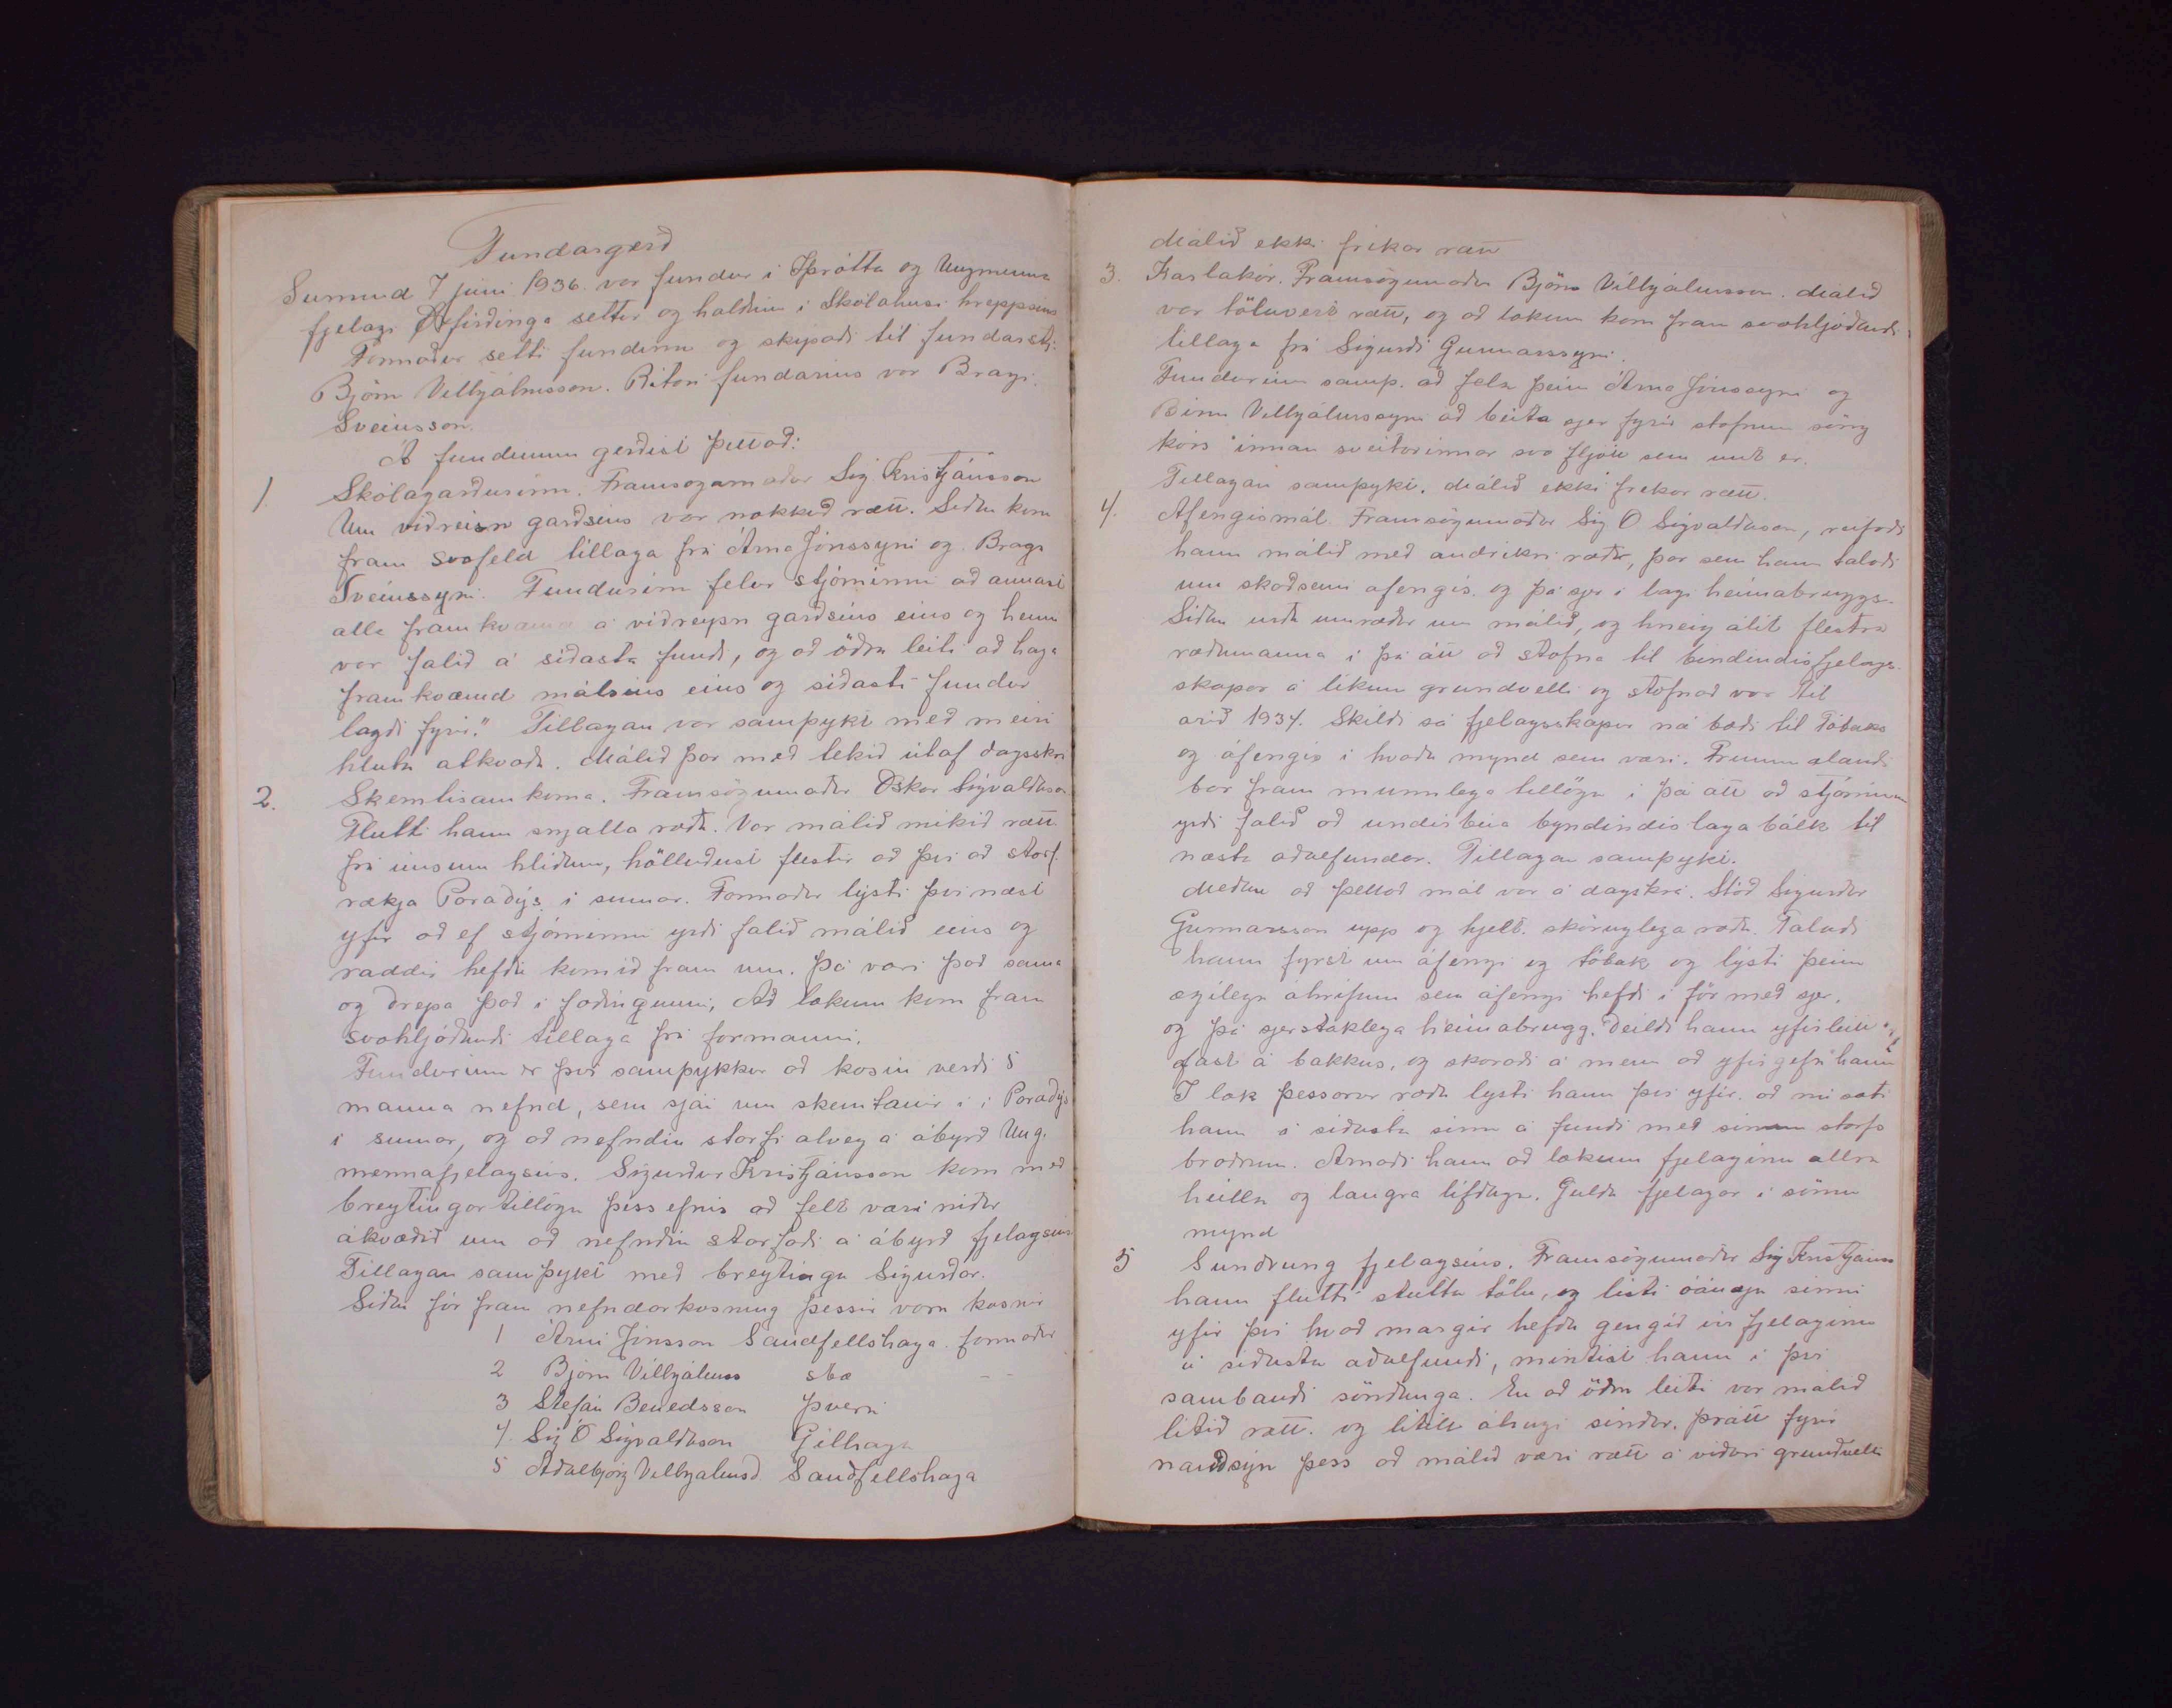 Fundargerd
Sunnud 7 júni 1936. var fundur i Íþrótta og Ungmenna
fjelagi Öxfirðinga settur og haldinn i Skólahusi hreppsins
Formaður setti fundinn og skipaði til fundarstj.
Björn Vilhjálmsson. Ritari fundarins var Bragi
Sveinsson.
Á fundinum gerðist þettað:
1. Skólagarðurinn. Framsögumaður Sig Kristjánsson
Um viðreisn garðsins var nokkuð rætt. Siðan kom
fram svofeld tillaga frá Árna Jónssyni og Braga
Sveinssyni. Fundurinn felur stjórninni að annast
alla framkvæmd á viðreysn garðsins eins og henni
var falið á siðasta fundi, og að öðru leiti að haga
framkvæmd málsins eins og siðasti fundur
lagði fyrir." Tillagan var samþykt með meiri
hluta atkvæða. Málið þar með tekið útaf dagsskrá
2. Skemtisamkoma. Framsögumaður Óskar Sigvaldason
Flutti hann snjalla ræðu. Var málið mikið rætt
frá imsum hliðum, hölluðust flestir að þvi að starf-
rækja Paradýs i sumar. Formaður lýsti þvi næst
yfir að ef stjórninni yrði falið málið eins og
raddir hefðu komið fram um. Þá væri það sama
og drepa það i fæðingunni, Að lokum kom fram
svohljóðandi tillaga frá formanni.
Fundurinn er þvi samþykkur að kosin verði 5
manna nefnd, sem sjái um skemtanir i i Paradýs
i sumar, og að nefndin starfi alveg á ábyrð Ung.
mennafjelagsins. Sigurður Kristjánsson kom með
breytingartillögu þess efnis að felt væri niður
ákvæðið um að nefndin starfaði á ábyrð fjelagsins
Tillagan samþykt með breytingu Sigurðar.
Siðan fór fram nefndarkosning þessir voru kosnir
1 Árni Jónsson Sandfellshaga. formaður
2 Björn Vilhjálmss sta - -
3 Stefán Benedsson Þverá
4. Sig Ó Sigvaldason Gilhaga
5 Aðalbjörg Vilhjalmsd Sandfellshaga
Málið ekki frekar rætt
3. Karlakór. Framsögumaður Björn Vilhjálmsson. Málið
var töluvert rætt, og að lokum kom fram svohljóðandi
tillaga frá Sigurði Gunnarssyni.
Fundurinn samþ. að fela þeim Árna Jónssyni og
Birni Vilhjálmssyni að beita sjer fyrir stofnun söng
kórs innan sveitarinnar svo fljótt sem unt er.
Tillagan samþykt. Málið ekki frekar rætt.
4. Áfengismál. Framsögumaður Sig Ó Sigvaldason, reifaði
hann málið með andrikri ræðu, þar sem hann talaði
um skaðsemi áfengis. og þá sjer i lagi heimabruggs.
Siðan urðu umræður um málið, og hneig álit flestra
ræðumanna i þá átt að stofna til bindindisfjelags-
skapar á likum grundvelli og stofnað var til
árið 1934. Skildi sá fjelagsskapur ná bæði til tóbaks
og áfengis i hvaða mynd sem væri. Frummælandi
bar fram munnlega tillögu i þá átt að stjórninni
yrði falið að undirbúa byndindislagabálk til
næsta aðalfundar. Tillagan samþykt.
Meðan að þettað mál var á dagskrá. Stóð Sigurður
Gunnarsson upp og hjelt. skörunglega ræðu. Talaði
hann fyrst um áfengi og tóbak og lýsti þeim
ægilegu áhrifum sem áfengi hefði i för með sjer.
og þá sjerstaklega heimabrugg. Deildi hann yfirleitt
fast á bakkus, og skoraði á menn að yfirgefa hann
I lok þessarar ræðu lysti hann þvi yfir. að nú sæti
hann i siðasta sinn á fundi með sinum starfs
bræðrum. Árnaði hann að lokum fjelaginu allra
heilla og langra lifdaga. Guldu fjelagar i sömu
mynd
5 Sundrung fjelagsins. Framsögumaður Sig Kristjánss
hann flutti stutta tölu, og listi óánægju sinni
yfir þvi hvað margir hefðu gengið úr fjelaginu
á siðasta aðalfundi, mintist hann i þvi
sambandi söndunga. En að öðru leiti var málið
litið rætt. og litill áhugi sindur. þrátt fyrir
nauðsýn þess að málið væri rætt á viðari grundvelli